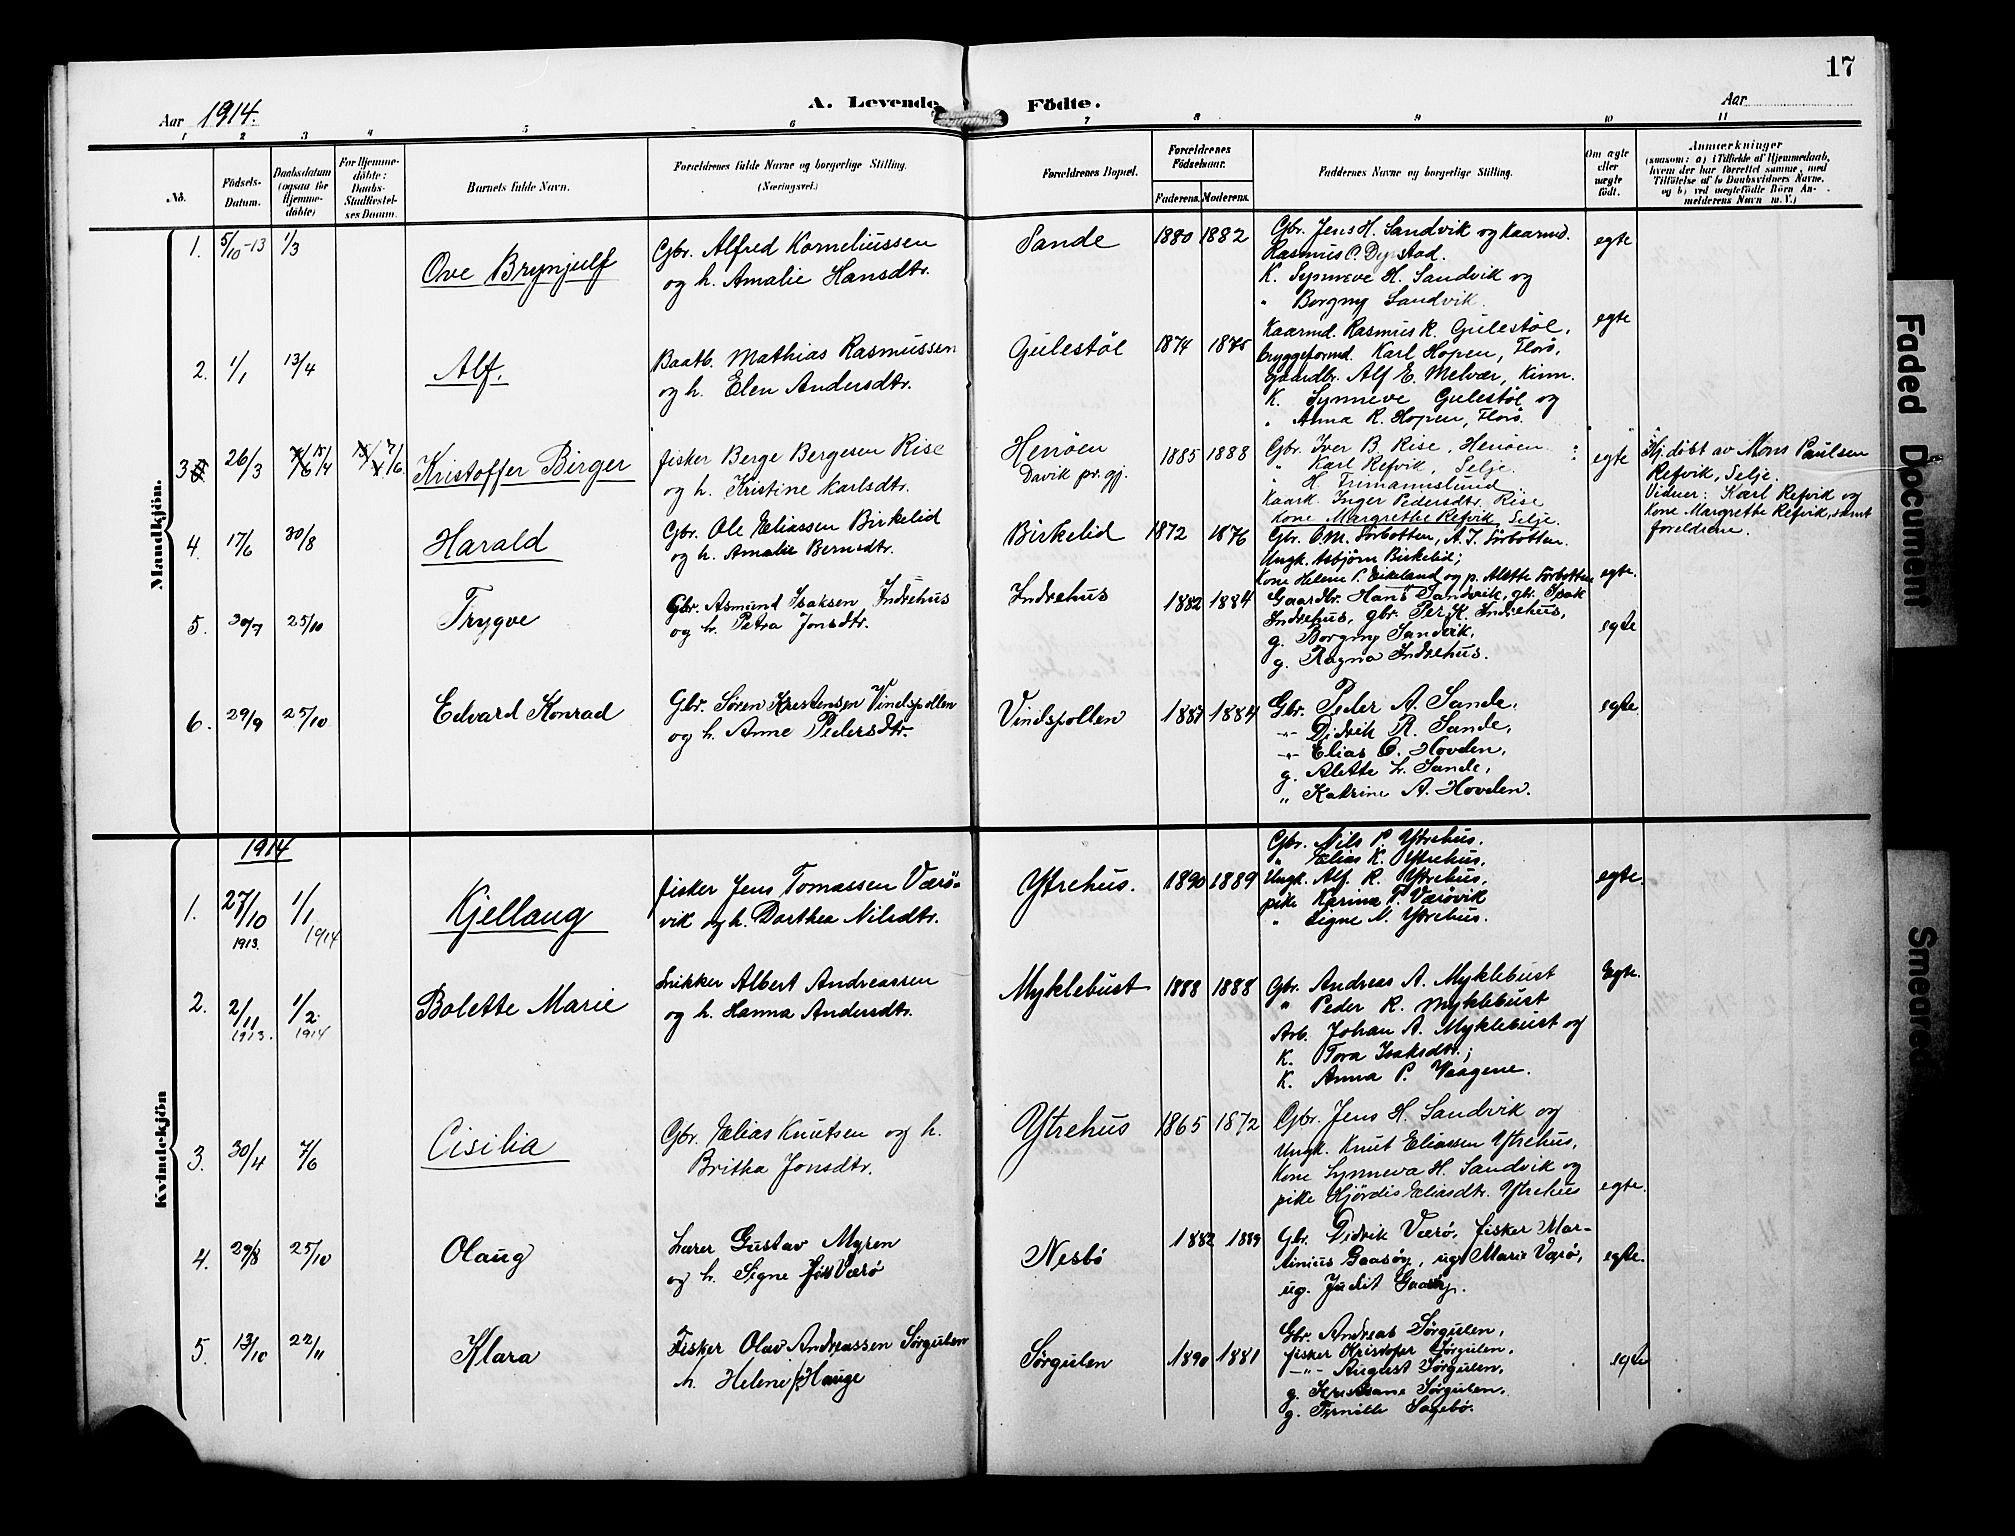 17
Aar 1914.
A. Levende Födte.
Aar
1 2 3 4 5 6 7 8 9 10 11
No.
Födsels-Datum.
Daabsdatum (ogsaa for Hjemme-döbte)
For Hjemme-döbte: Daabs-Stadfæstel-ses Datum.
Barnets fulde Navn.
Forældrenes fulde Navne og borgerlige Stilling. (Næringsvei.)
Forældrenes Bopæl.
Forældrenes Födselsaar.
Faderens. Moderens.
Faddernes Navne og borgerlige Stilling.
Om ægte eller uægte födt.
Anmærkninger
(saasom: a) i Tilfælde af Hjemmedaab, hvem der har forrettet samme, med Tilföielse af to Daabsvidners Navne, og b) ved uægtefödte Börn An-melderens Navn m. V.)
Mandkjön.
1. 5/10 -13 1/3
Ove Brynjulf
Gbr. Alfred Korneliussen
og h. Amalie Hansdtr.
Sande 1880 1882
Gbr. Jens H. Sandvik og kaarmd.
Rasmus C. Dyrstad.
K. Synneve H. Sandvik og
" Borgny Sandvik.
egte
2. 1/1 13/4
Alf.
Baatb. Mathias Rasmussen
og h. Elen Andersdtr.
Gulestöl 1874 1875
Kaarmd. Rasmus R. Gulestöl,
bryggeformd. Karl Hopen, Florö,
gaardbr. Alf E. Melvær, Kinn.
K. Synneve Gulestöl og
" Anna R. Hopen, Florö.
egte
3 26/3 15/4 7/6
Kristoffer Birger
fisker Berge Bergesen Rise
og h. Kristine Karlsdtr.
Henöen
Davik pr.gj.
1885 1888
Gbr. Iver B. Rise, Henöen
" Karl Refvik, Selje.
" H. Frimannslund
Kaark. Inger Pedersdtr. Rise
Kone Margrethe Refvik, Selje.
egte
Hj.döbt av Mons Paulsen
Refvik, Selje.
Vidner: Karl Refvik og
Kone Margrethe Refvik, samt
foreldrene.
4. 17/6 30/8
Harald
Gbr. Ole Eliassen Birkelid
og h. Amalie Berntdtr.
Birkelid 1872 1876
Gbr. O.M. Förbotten, A.J. Förbotten.
Ungk. Asbjörn Birkelid;
Kone Helene P. Eikeland og p. Alette Förbotten
egte.
5. 30/7 25/10
Trygve
Gbr. Asmund Isaksen Indrehus
og h. Petra Jonsdtr.
Indrehus 1882 1884
Gaardbr. Hans Sandvik, gbr. Isak
Indrehus, gbr. Per K. Indrehus,
g. Borgny Sandvik,
g. Ragna Indrehus.
egte
6. 29/9 25/10
Edvard Konrad
Gbr. Søren Kristensen Vindspollen
og h. Anne Pedersdtr.
Vindspollen 1887 1884
Gbr. Peder A. Sande,
-"- Didrik R. Sande,
-"- Elias O. Hovden,
g. Alette L. Sande,
" Katrine A. Hovden.
egte
Kvindekjön
1914
1. 27/10 1913. 1/1 1914
Kjellaug
fisker Jens Tomassen Værö-
vik og h. Dorthea Nilsdtr.
Ytrehus. 1890 1889
Gbr. Nils P. Ytrehus.
" Elias K. Ytrehus.
Ungk. Alf R. Ytrehus.
pike Karina T. Værövik
" Signe N. Ytrehus.
egte.
2. 2/11 1913. 1/2 1914
Bolette Marie
Snikker Albert Andreassen
og h. Hanna Andersdtr.
Myklebust 1888 1888
Gbr. Andreas A. Myklebust
" Peder R. Myklebust
Arb. Johan A. Myklebust og
K. Tora Isaksdtr.;
K. Anna P. Vaagene.
Egte.
3. 30/4 7/6
Cisilia
Gbr. Elias Knutsen og h.
Britha Jonsdtr.
Ytrehus 1865 1872
Gbr. Jens H. Sandvik og
Ungk. Knut Eliassen Ytrehus,
Kone Synneva H. Sandvik og
pike Hjördis Eliasdtr. Ytrehus
egte.
4. 29/8 25/10
Olaug
Lærer Gustav Myren
og h. Signe Værø
Nesbö 1882 1889
Gbr. Didrik Værø, fisker Mar-
tinius Gaasöy, ug. Marie Værø,
ug. Judit Gaasöy.
egte.
5. 13/10 22/11
Klara
Fisker Olav Andreassen Sørgulen
h. Helene Hauge
Sørgulen 1890 1881
Gbr. Andreas Sørgulen,
fisker Kristofer Sørgulen,
-"- August Sørgulen,
g. Kristiane Sørgulen,
g. Pernille Sagebö.
egte
Faded Document
Smeared